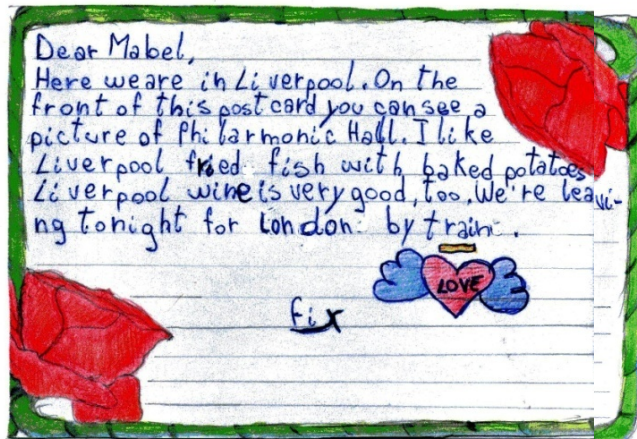 Dear Mabel,
Here we are in Liverpool. On the
front of this postcard you can see a
picture of Philarmonic Hall. I like
Liverpool fried fish with baked potatoes
Liverpool wine is very good, too. We're leavi-
ng tonight for London by train.
LOVE
Fix